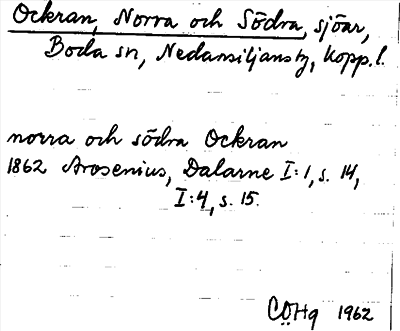 Ockran, Norra och Södra, sjöar,
Boda sn, Nedansiljans tg, Kopp. l.
norra och södra Ockran
1862 Arosenius, Dalarne I:1, s. 14,
I:4, s. 15.
CÖHg 1962